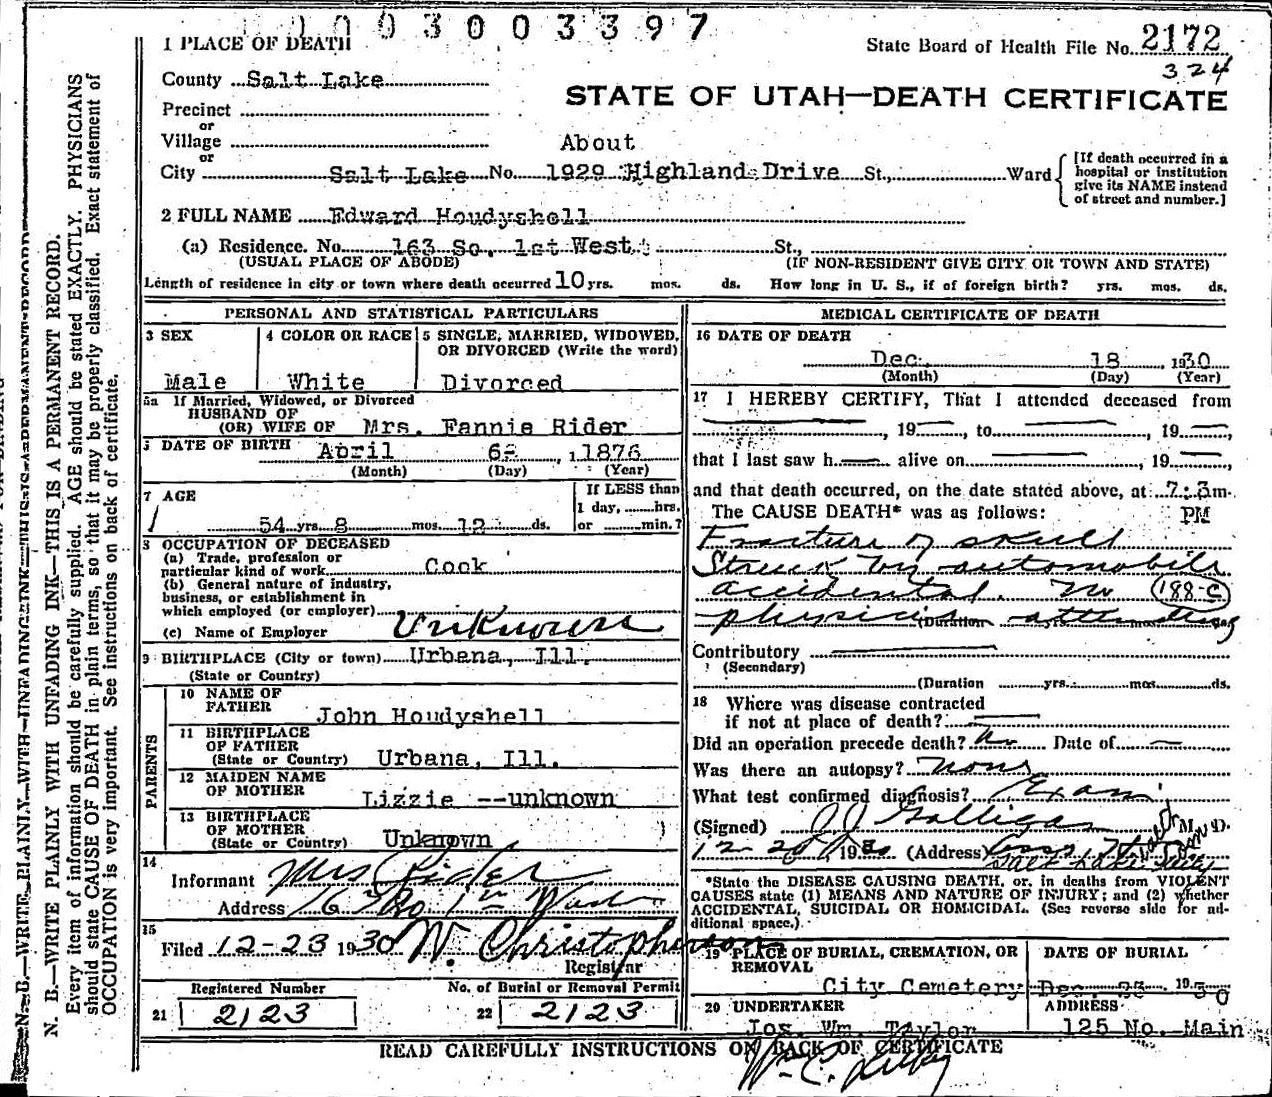 003003397
1 PLACE OF DEATH
State Board of Health File No. 2172
324
County Salt Lake
STATE OF UTAH—DEATH CERTIFICATE
Precinct
or
Village
About
or
City Salt Lake No. 1929 Highland Drive St., Ward
[If death occurred in a
hospital or institution
give its NAME instead
of street and number.]
2 FULL NAME Edward Houdyshell
(a) Residence. No. 163 So. 1st West St.,
(USUAL PLACE OF ABODE) (IF NON-RESIDENT GIVE CITY OR TOWN AND STATE)
Length of residence in city or town where death occurred 10 yrs. mos. ds. How long in U. S., if of foreign birth? yrs. mos. ds.
PERSONAL AND STATISTICAL PARTICULARS
3 SEX
Male
4 COLOR OR RACE
White
5 SINGLE, MARRIED, WIDOWED,
OR DIVORCED (Write the word)
Divorced
5a If Married, Widowed, or Divorced
HUSBAND OF
(OR) WIFE OF Mrs. Fannie Rider
DATE OF BIRTH April 6 1876
(Month) (Day) (Year)
7 AGE
54 yrs. 8 mos. 12 ds.
If LESS than
1 day, hrs.
or min.?
OCCUPATION OF DECEASED
(a) Trade, profession or
particular kind of work Cook
(b) General nature of industry,
business, or establishment in
which employed (or employer)
(c) Name of Employer Unknown
9 BIRTHPLACE (City or town) Urbana, Ill.
(State or Country)
PARENTS
10 NAME OF
FATHER John Houdyshell
11 BIRTHPLACE
OF FATHER
(State or Country) Urbana, Ill.
12 MAIDEN NAME
OF MOTHER Lizzie --unknown
13 BIRTHPLACE
OF MOTHER
(State or Country) Unknown
14
Informant Mrs Rider
Address 163 So 1st West
15
Filed 12-23 1930 W. Christopherson
Registrar
Registered Number
21 2123
No. of Burial or Removal Permit
22 2123
MEDICAL CERTIFICATE OF DEATH
16 DATE OF DEATH
Dec. 18 1930
(Month) (Day) (Year)
17 I HEREBY CERTIFY, That I attended deceased from
, 19 , to , 19 ,
that I last saw h alive on , 19 ,
and that death occurred, on the date stated above, at 7:3 m.
The CAUSE DEATH* was as follows: PM
Fracture of skull
Struck by automobile
accidental. No 188-c
physician attending
(Duration
Contributory
(Secondary)
(Duration yrs. mos. ds.
18 Where was disease contracted
if not at place of death?
Did an operation precede death? No Date of
Was there an autopsy? None
What test confirmed diagnosis? Exam
(Signed) J J Galligan M. D.
12-20 1930 (Address)
Salt Lake City
*State the DISEASE CAUSING DEATH, or, in deaths from VIOLENT
CAUSES state (1) MEANS AND NATURE OF INJURY; and (2) whether
ACCIDENTAL, SUICIDAL OR HOMICIDAL. (See reverse side for ad-
ditional space.)
19 PLACE OF BURIAL, CREMATION, OR
REMOVAL
City Cemetery
DATE OF BURIAL
Dec. 1930
20 UNDERTAKER
Jos. Wm. Taylor
ADDRESS
125 No. Main
READ CAREFULLY INSTRUCTIONS ON BACK OF CERTIFICATE
N. B.—WRITE PLAINLY WITH UNFADING INK—THIS IS A PERMANENT RECORD.
Every item of information should be carefully supplied. AGE should be stated EXACTLY. PHYSICIANS
should state CAUSE OF DEATH in plain terms, so that it may be properly classified. Exact statement of
OCCUPATION is very important. See instructions on back of certificate.